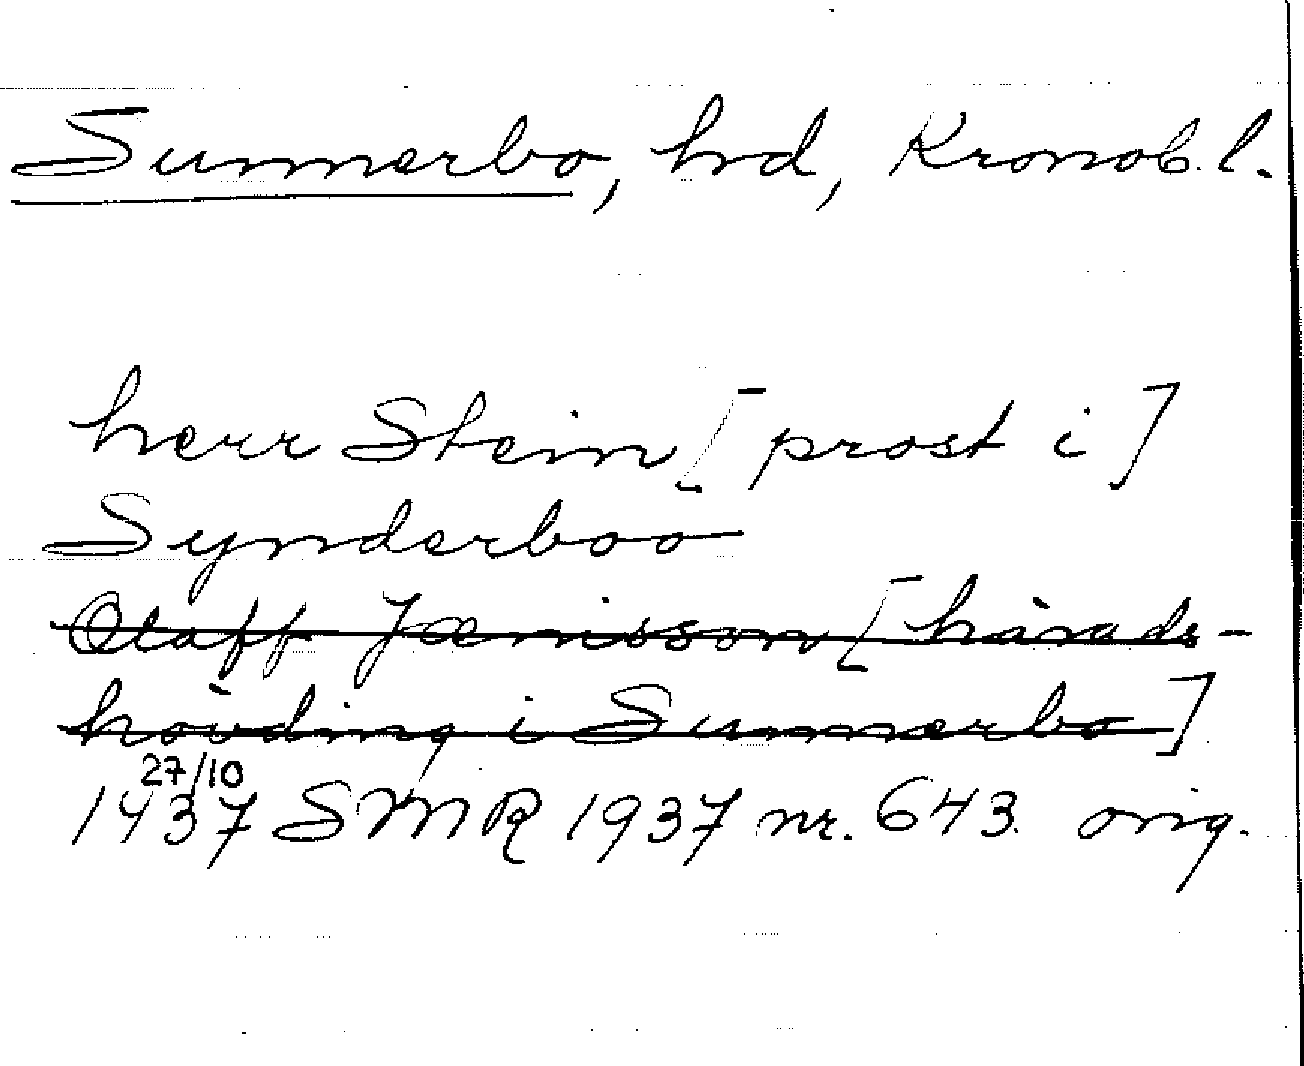 Sunnerbo, hd, Kronob. l.
herr Stein [prost i]
Synderboo
Olaff Jænisson [härads-
hövding i Sunnerbo]
27/10
1437 SMR 1937 nr. 643 orig.